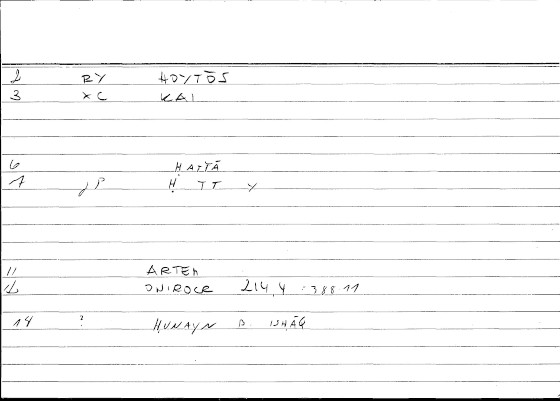 2 RY HOYTŌS
3 XC KAI
6 ḤATTĀ
7 JP Ḥ TT Y
11 ARTEM
12 ONIROCR 214,4 : 388 11
14 ? ḤUNAYN B. ISḤĀQ